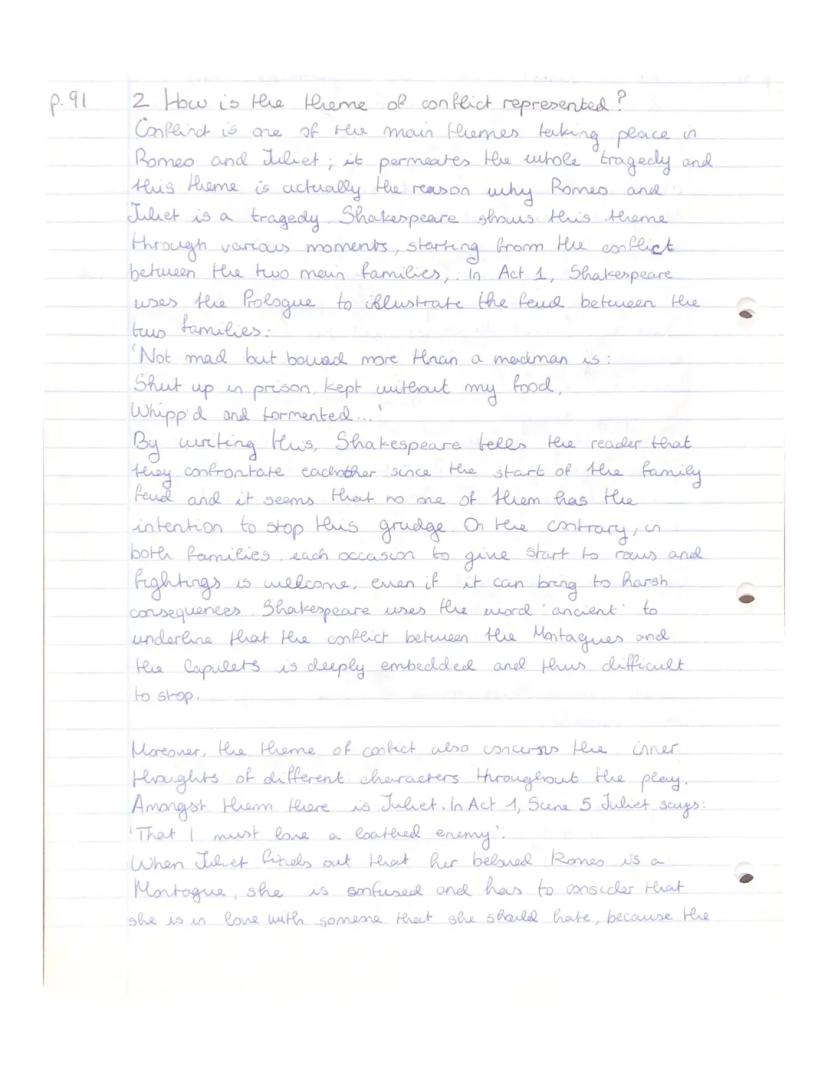 p.91 2 How is the theme of conflict represented?
Conflinct is one of the main themes taking place in
Romeo and Juliet; it permeates the whole tragedy and
this theme is actually the reason why Romeo and
Juliet is a tragedy. Shakespeare shows this theme
through various moments, starting from the conflict
between the two main families,. In Act 1, Shakespeare
uses the Prologue to illustrate the feud between the
two families:
'Not mad but bound more than a madman is:
Shut up in prison, kept without my food,
Whipp'd and tormented...'
By writing this, Shakespeare tells the reader that
they confrontate eachother since the start of the family
feud and it seems that no one of them has the
intention to stop this grudge. On the contrary, in
both families, each occasion to give start to rows and
fightings is wellcome, even if it can bring to harsh
consequences. Shakespeare uses the word 'ancient' to
underline that the conflict between the Montagues and
the Capulets is deeply embedded and thus difficult
to stop.
Moreover, the theme of conflict also concerns the inner
thoughts of different characters throughout the play.
Amongst them there is Juliet. In Act 1, Scene 5 Juliet says:
'That I must love a loathed enemy'.
When Juliet finds out that her beloved Romeo is a
Montague, she is confused and has to consider that
she is in love with someone that she should hate, because the